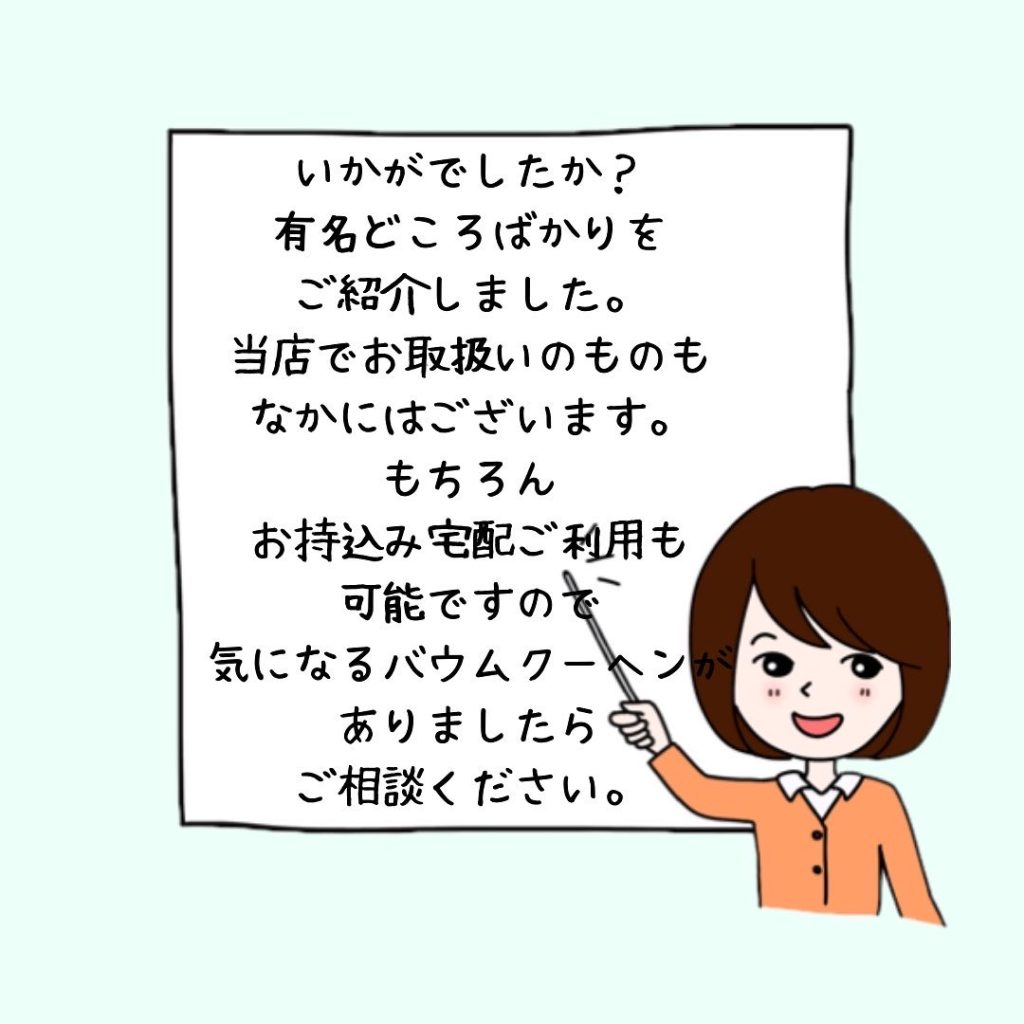 いかがでしたか？
有名どころばかりを
ご紹介しました。
当店でお取扱いのものも
なかにはございます。
もちろん
お持込み宅配ご利用も
可能ですので
気になるバウムクーヘンが
ありましたら
ご相談ください。